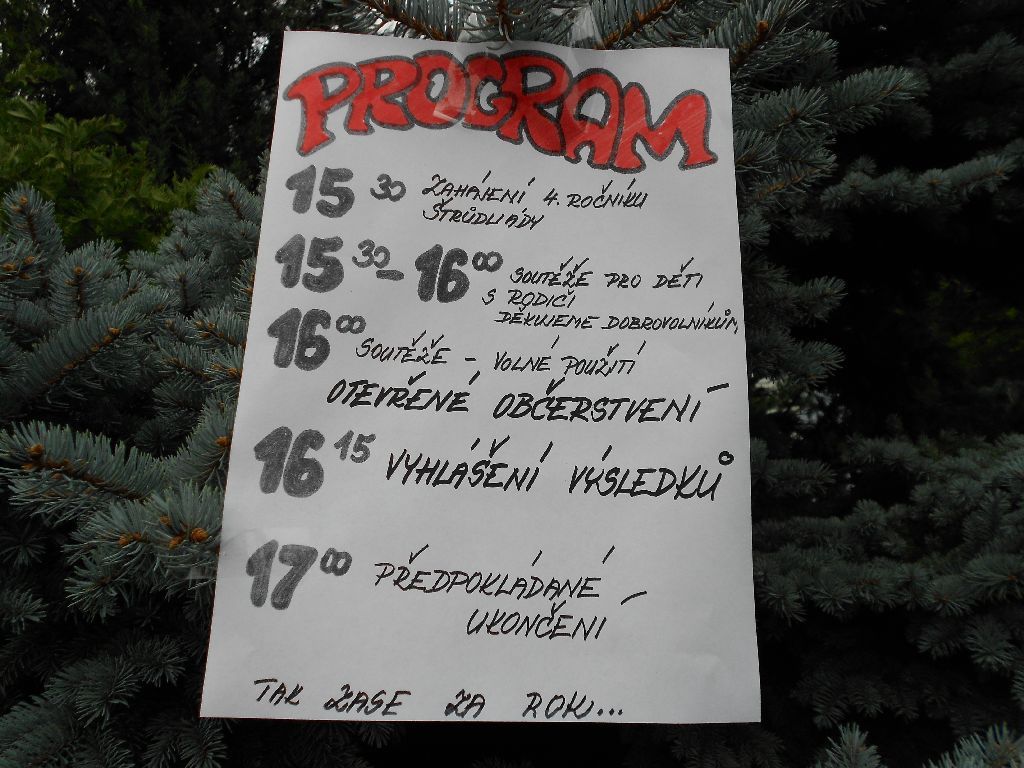 PROGRAM
15 30 ZAHÁJENÍ 4. ROČNÍKU
ŠTRŮDLIÁDY
15 30 - 16 00 SOUTĚŽE PRO DĚTI
S RODIČI
DĚKUJEME DOBROVOLNÍKŮM,
16 00 SOUTĚŽE - VOLNÉ POUŽITÍ
OTEVŘENÉ OBČERSTVENÍ
16 15 VYHLÁŠENÍ VÝSLEDKŮ
17 00 PŘEDPOKLÁDANÉ
UKONČENÍ
TAK ZASE ZA ROK...